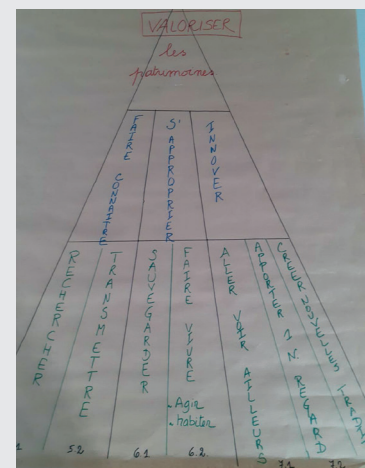 VALORISER
les
patrimoines
FAIRE CONNAITRE
S'APPROPRIER
INNOVER
RECHERCHER
TRANSMETTRE
SAUVEGARDER
FAIRE VIVRE
. Agir
. habiter
ALLER VOIR AILLEURS
APPORTER 1 N. REGARD
CREER NOUVELLES TRADI
1
5.2
6.1
6.2
7.1
7.2